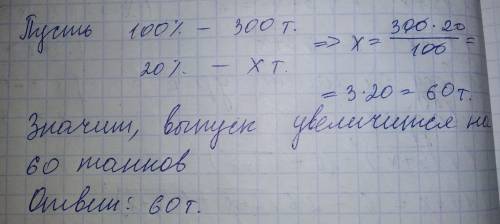 Пусть 100% – 300 т. => x = 300·20/100 =
20% – x т.
= 3·20 = 60 т.
Значит, выпуск увеличится на
60 танков
Ответ: 60 т.